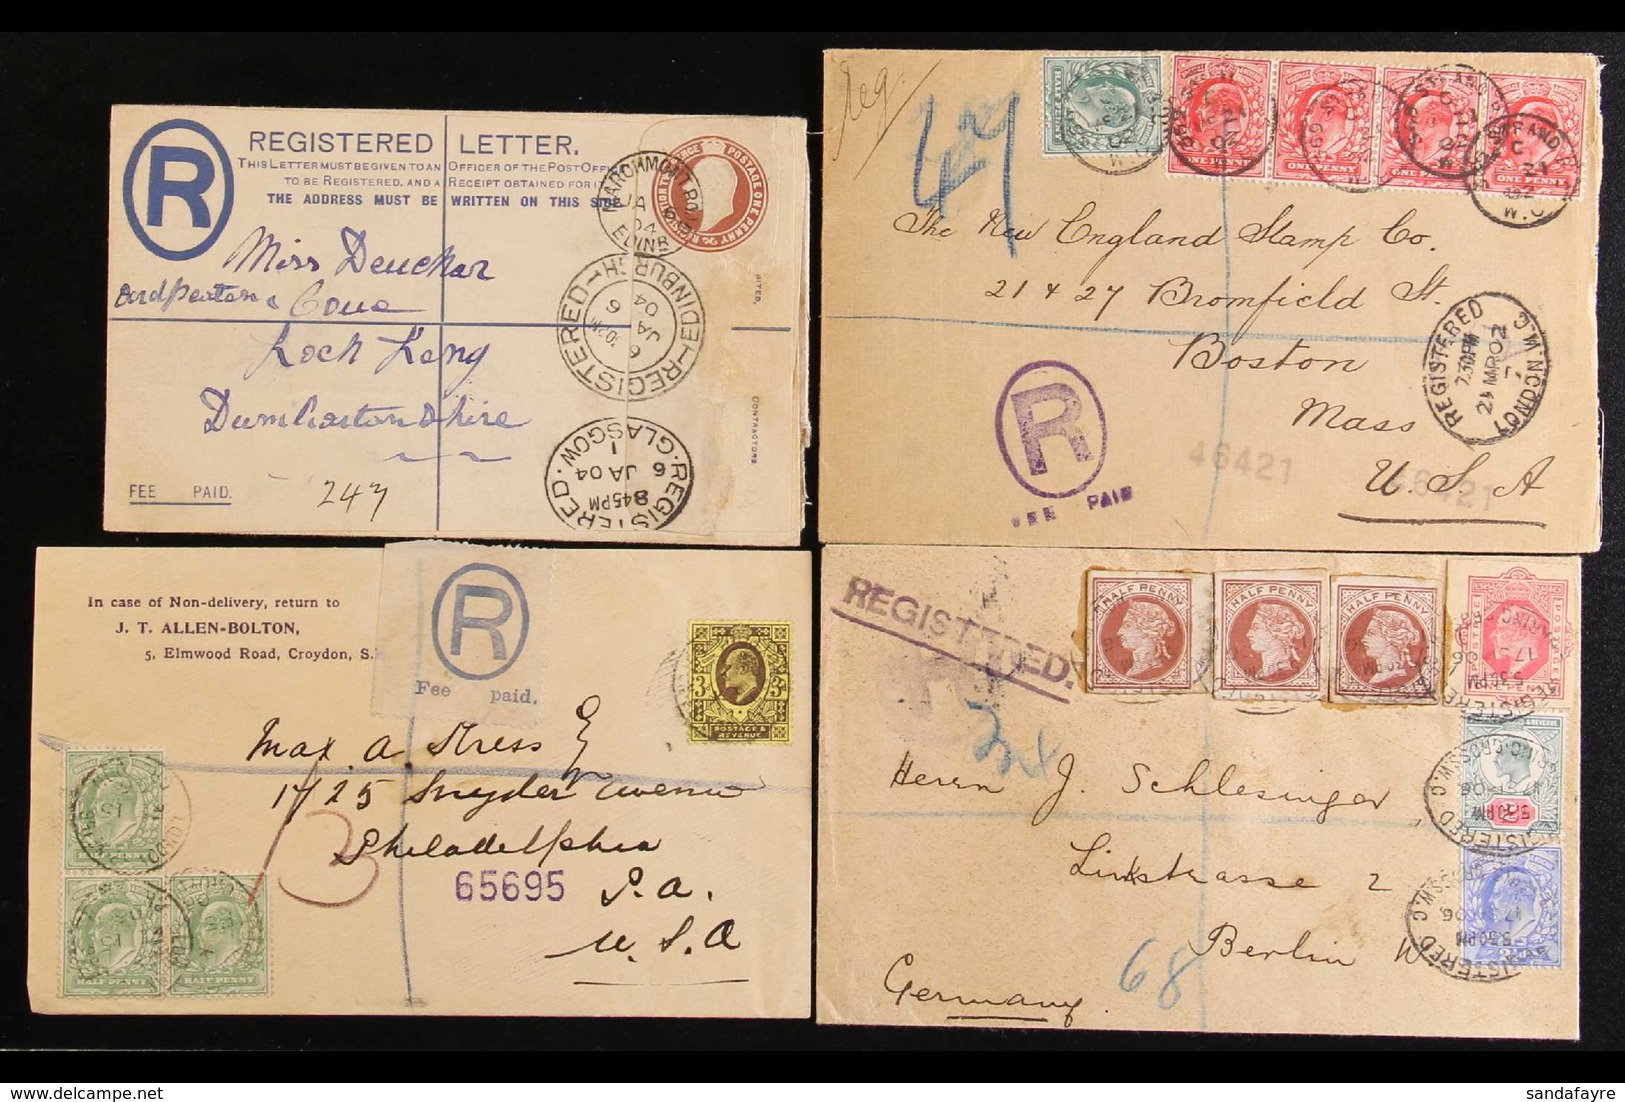 REGISTERED LETTER.
THIS LETTER MUST BE GIVEN TO AN OFFICER OF THE POST OFFICE
TO BE REGISTERED, AND A RECEIPT OBTAINED FOR IT
THE ADDRESS MUST BE WRITTEN ON THIS SIDE
R
POSTAGE ONE PENNY
MARCHMONT RD
JA 6
04
EDINR
Miss Deuchar
Cove
Loch Long
Dumbartonshire
REGISTERED EDINBURGH
6 JA 04
REGISTERED GLASGOW
8 45 PM
6 JA 04
1
CONTRACTORS
FEE PAID.
247
Reg.
ONE PENNY ONE PENNY ONE PENNY ONE PENNY
STRAND
W.C
The New England Stamp Co.
21 & 27 Bromfield St.
Boston
Mass
U. S. A
REGISTERED
7.30PM
21 MAR 02
LONDON. W.C
R
FEE PAID
46421
46421
In case of Non-delivery, return to
J. T. ALLEN-BOLTON,
5, Elmwood Road, Croydon, S.
R
Fee paid.
POSTAGE & REVENUE
Max. A. Stress Esq
1725 Snyder Avenue
Philadelphia
P.A.
U.S.A
65695
3
HALF PENNY
HALF PENNY HALF PENNY
REGISTERED.
HALF PENNY HALF PENNY HALF PENNY
REGISTERED CHARING CROSS W.C.
17 SP 06
5.30PM
Herrn J. Schlesinger
Linkstrasse 2
Berlin W
Germany
68
sandafayre